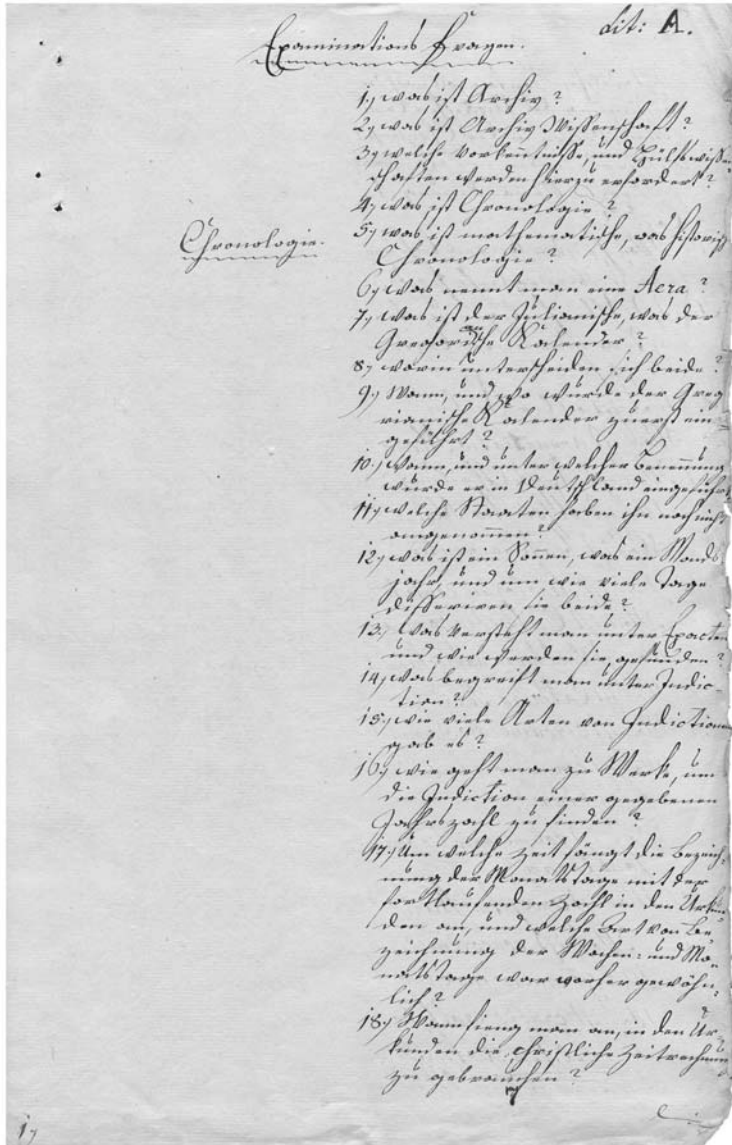 Lit: A.
Examinations Fragen.
1.) was ist Archiv?
2.) was ist Archiv Wissenschaft?
3.) welche Vorkenntnisse, und Hülfswissen
schaften werden hierzu erfordert?
4.) was ist Chronologie?
Chronologie.
5.) was ist mathematische, was historisch
Chronologie?
6.) was nennt man eine Aera?
7.) was ist der Julianische, was der
Gregorianische Kalender?
8.) worin unterscheiden sich beide?
9.) Wann, und wo wurde der Greg
rianische Kalender zuerst ein
geführt?
10.) wann, und unter welcher Benennung
wurde er in Deutschland eingeführt
11.) welche Staaten haben ihn noch nicht
angenommen?
12.) was ist ein Sonnen, was ein Monds
jahr, und um wie viele Tage
differiren sie beide?
13.) was versteht man unter Epacten
und wie werden sie gefunden?
14.) was begreift man unter Indic-
tion?
15.) wie viele Arten von Indictionen
gab es?
16.) wie geht man zu Werke, um
die Indiction einer gegebenen
Jahrszahl zu finden?
17.) Um welche Zeit fängt die Bezeich-
nung der Monatstage mit der
fortlaufenden Zahl in den Urkun
den an, und welche Art von Be
zeichnung der Wochen- und Mo-
natstage war vorher gewöhn-
lich?
18.) Wann fieng man an, in den Ur-
kunden die christliche Zeitrechnung
zu gebrauchen?
7
1.)